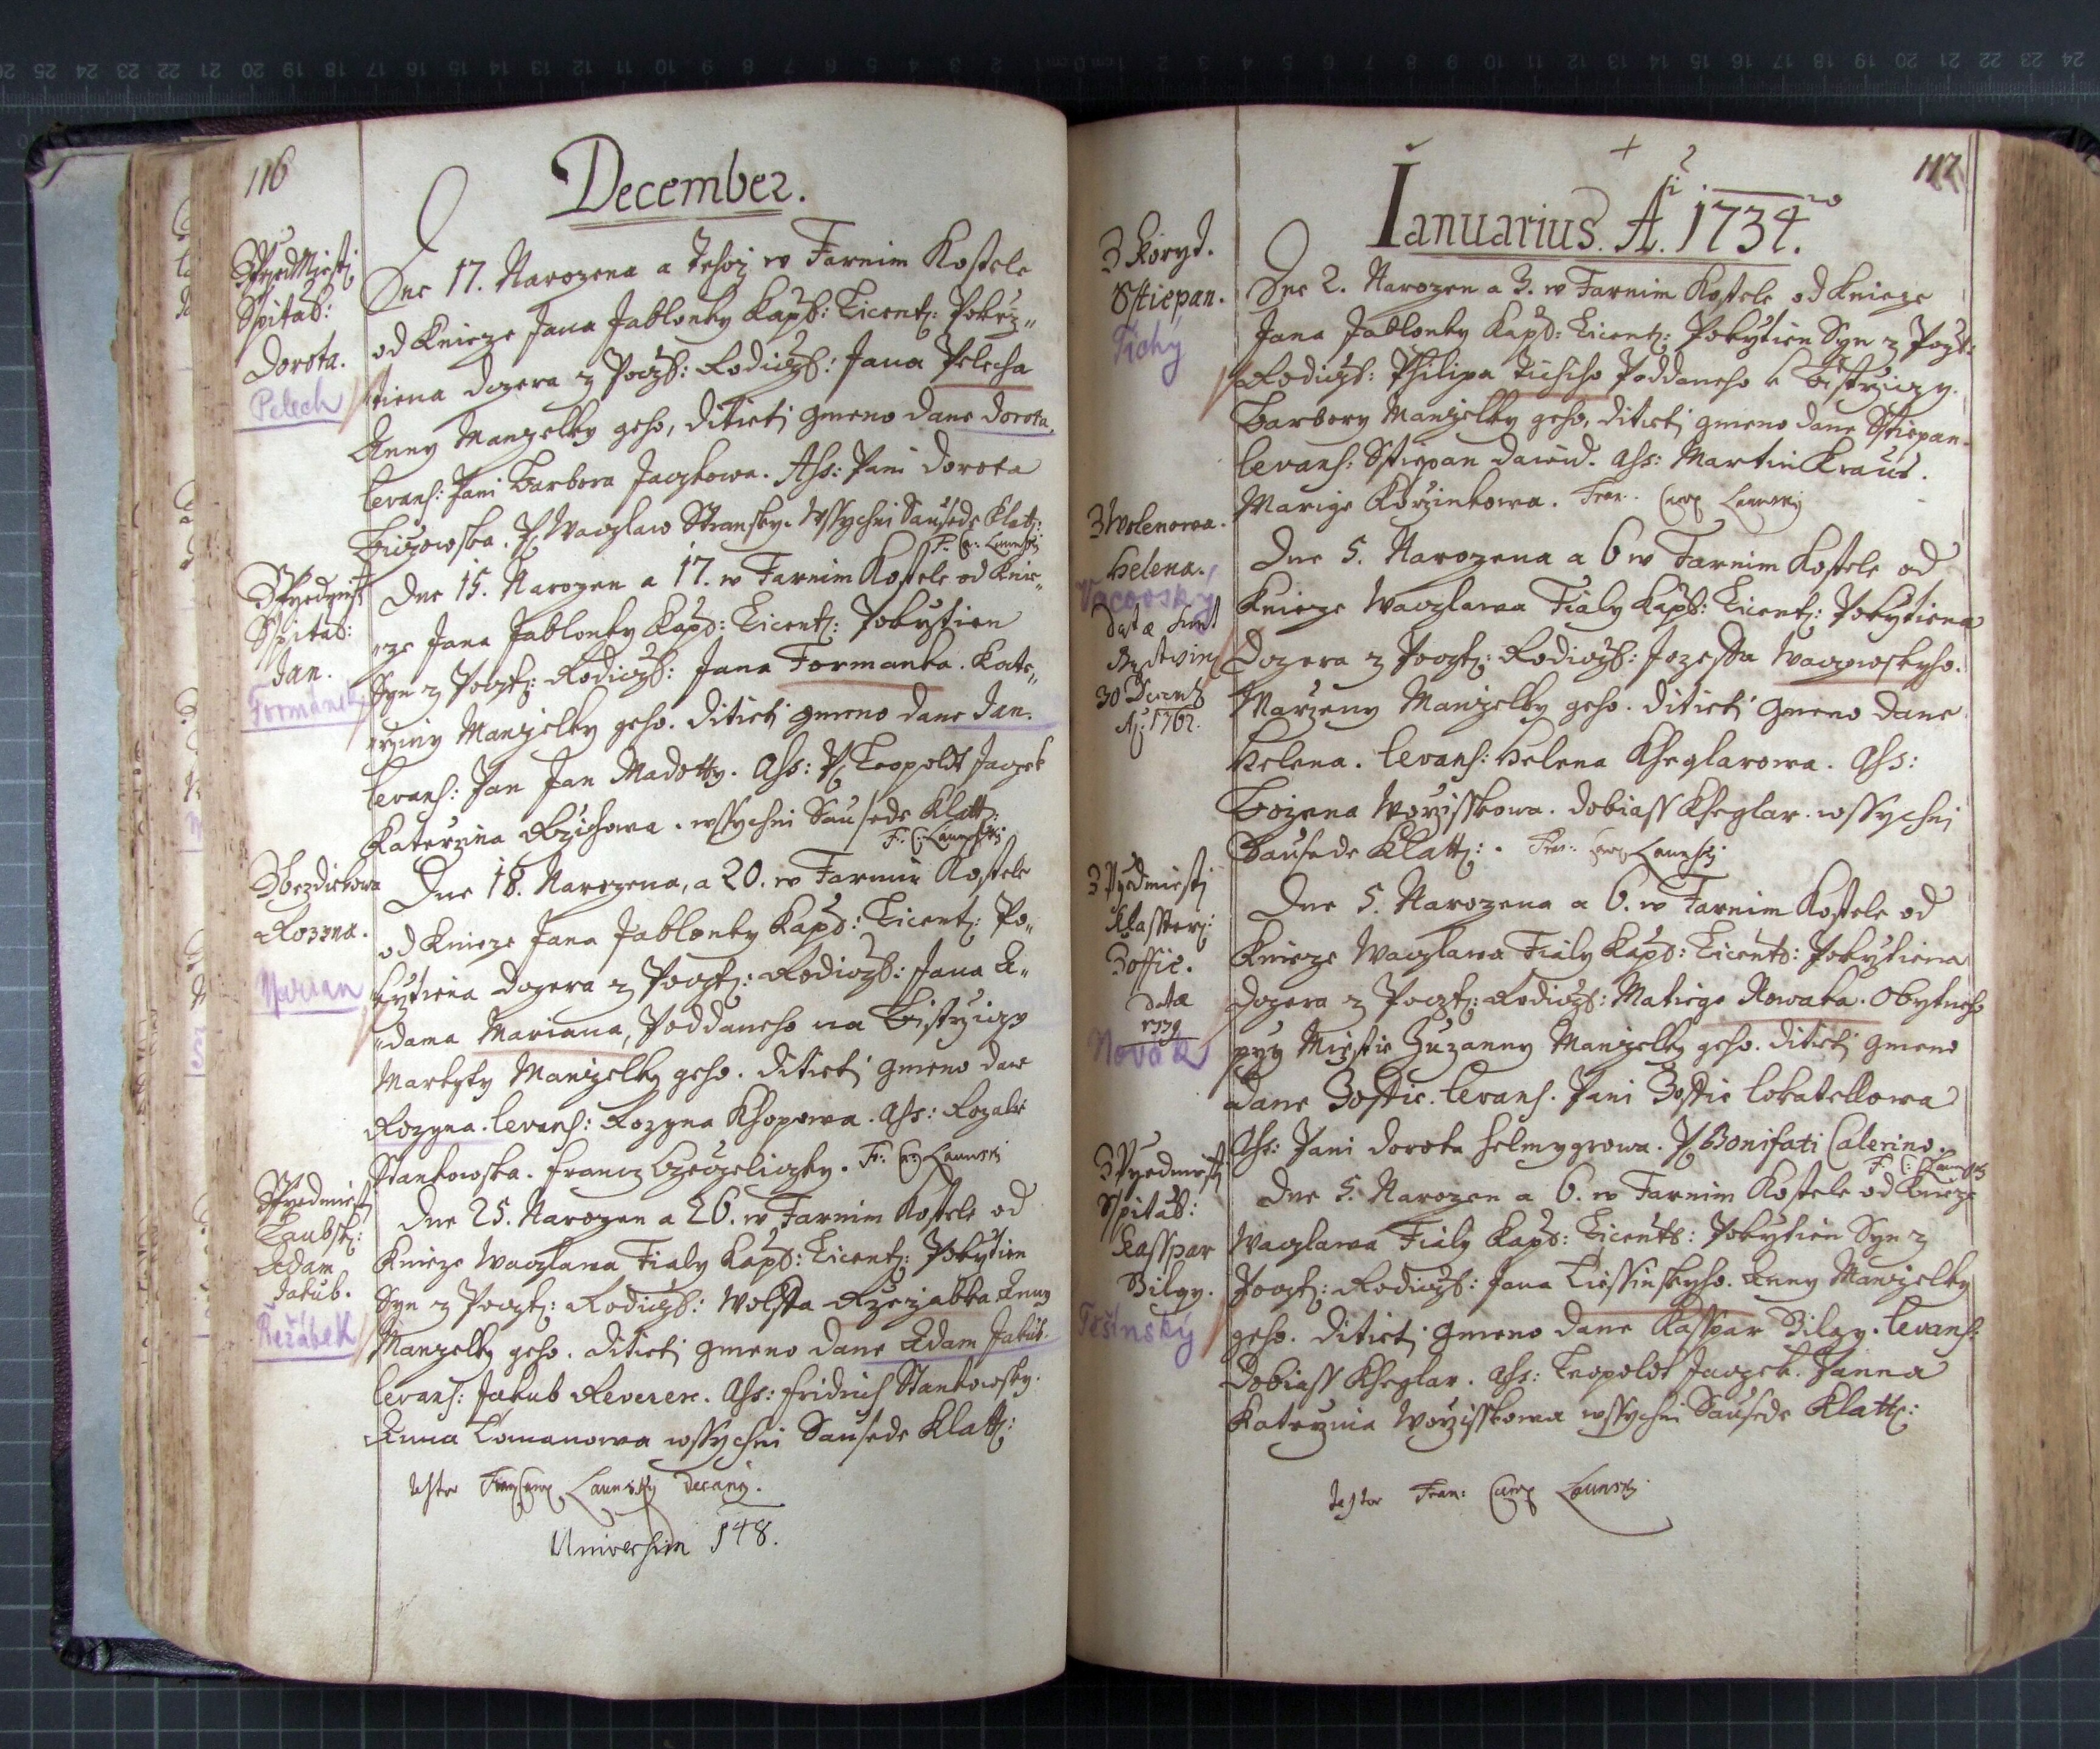 116
December.
Z Przedmiesti
Spitab:
Dorota.
Pelech
Dne 17. Narozena a tehoz w Farnim Kostele
od Knieze Jana Jablonky Kapl: Licent: Pokrz„
tiena Dczera z Pocztl: Rodiczl: Jana Pelecha
Anny Manzelky geho, ditieti gmeno dane Dorota.
Levans: Pani Barbora Jaczkowa. Ass: Pani Dorota
P: Waczlaw Stransky. Wssychni Sausede Klatt:
Z Przedmiest
Spitab:
Jan.
Formánek
Dne 15. Narozen a 17. w Farnim Kostele od Knie„
ze Jana Jablonky Kapl: Licent: Pokrztien
Syn z Pocztl: Rodiczl: Jana Formanka. Kate„
rziny Manzelky geho. ditieti gmeno dane Jan.
Levans: Pan Jan Madotty. Ass: P: Leopoldt Jaczek
Katerzina Rzichowa. wssychni Sausede Klatt:
Z Bezdiekowa
Rozyna.
Marian
Dne 18. Narozena, a 20. w Farnim Kostele
od Knieze Jana Jablonky Kapl: Licent: Po„
krztiena Dczera z Pocztl: Rodiczl: Jana A„
„dama Mariana, Poddaneho na Bistrziczy
Markyty Manzelky geho. ditieti gmeno dane
Rozyna. Levans: Rozyna Khopowa. Ass: Rozalie
Stankowska. Francz
Z Przedmiesti
Laubsk:
Adam
Jakub.
Řežábek
Dne 25. Narozen a 26. w Farnim Kostele od
Knieze Waczlawa Fialy Kapl: Licent: Pokrztien
Syn z Pocztl: Rodiczl: Wolffa Rzezabka Anny
Manzelky geho. ditieti gmeno dane Adam Jakub.
Levans: Jakub Reverer. Ass: Fridrich Stankowsky.
Anna Lomanowa wssychni Sausede Klatt:
Decany.
Universim 148.
117
Ianuarius. A. 1734.
Z Koryt.
Sstiepan.
Tichý
Dne 2. Narozen a 3. w Farnim Kostele od Knieze
Jana Jablonky Kapl: Licent: Pokrztien Syn z Poczt:
Rodiczl: Philipa Ticheho Poddaneho k Bistrziczy.
Barbory Manzelky geho, ditieti gmeno dane Sstiepan.
Levans: Sstiepan Dawid. Ass: Martin Kraus.
Marige Korzinkowa.
Z Wolenowa.
Helena.
Vacovský
30 Decemb
A: 1762.
Dne 5. Narozena a 6 w Farnim Kostele od
Knieze Waczlawa Fialy Kapl: Licent: Pokrztiena
Dczera z Pocztl: Rodiczl: Jozeffa Waczowskyho.
Marzeny Manzelky geho. ditieti gmeno dane
Helena. Levans: Helena Kheglarowa. Ass:
Bozena Worzisskowa. Dobiass Kheglar. wssychni
Sausede Klatt:
Z Przedmiesti
Klasster:
Zoffie.
Novák
Dne 5. Narozena a 6. w Farnim Kostele od
Knieze Waczlawa Fialy Kapl: Licent: Pokrztiena
Dczera z Pocztl: Rodiczl: Matiege Nowaka. Obytneho
przy Miestie Zuzanny Manzelky geho. ditieti gmeno
dane Zoffie. Levans. Pani Zoffie Lokatellowa
Ass: Pani Dorota Helmygrowa. P: Bonifati Calerino.
Z Przedmiesti
Spitab:
Kasspar
Bilgy.
Těšínský
Dne 5. Narozen a 6. w Farnim Kostele od Knieze
Waczlawa Fialy Kapl: Licent: Pokrztien Syn z
Pocztl: Rodiczl: Jana Tiessinskyho. Anny Manzelky
geho. ditieti gmeno dane Kasspar Bilgy. Levans:
Dobiass Kheglar. Ass: Leopoldt Jaczek. Panna
Katerzina Worzisskowa wssychni Sausede Klatt: